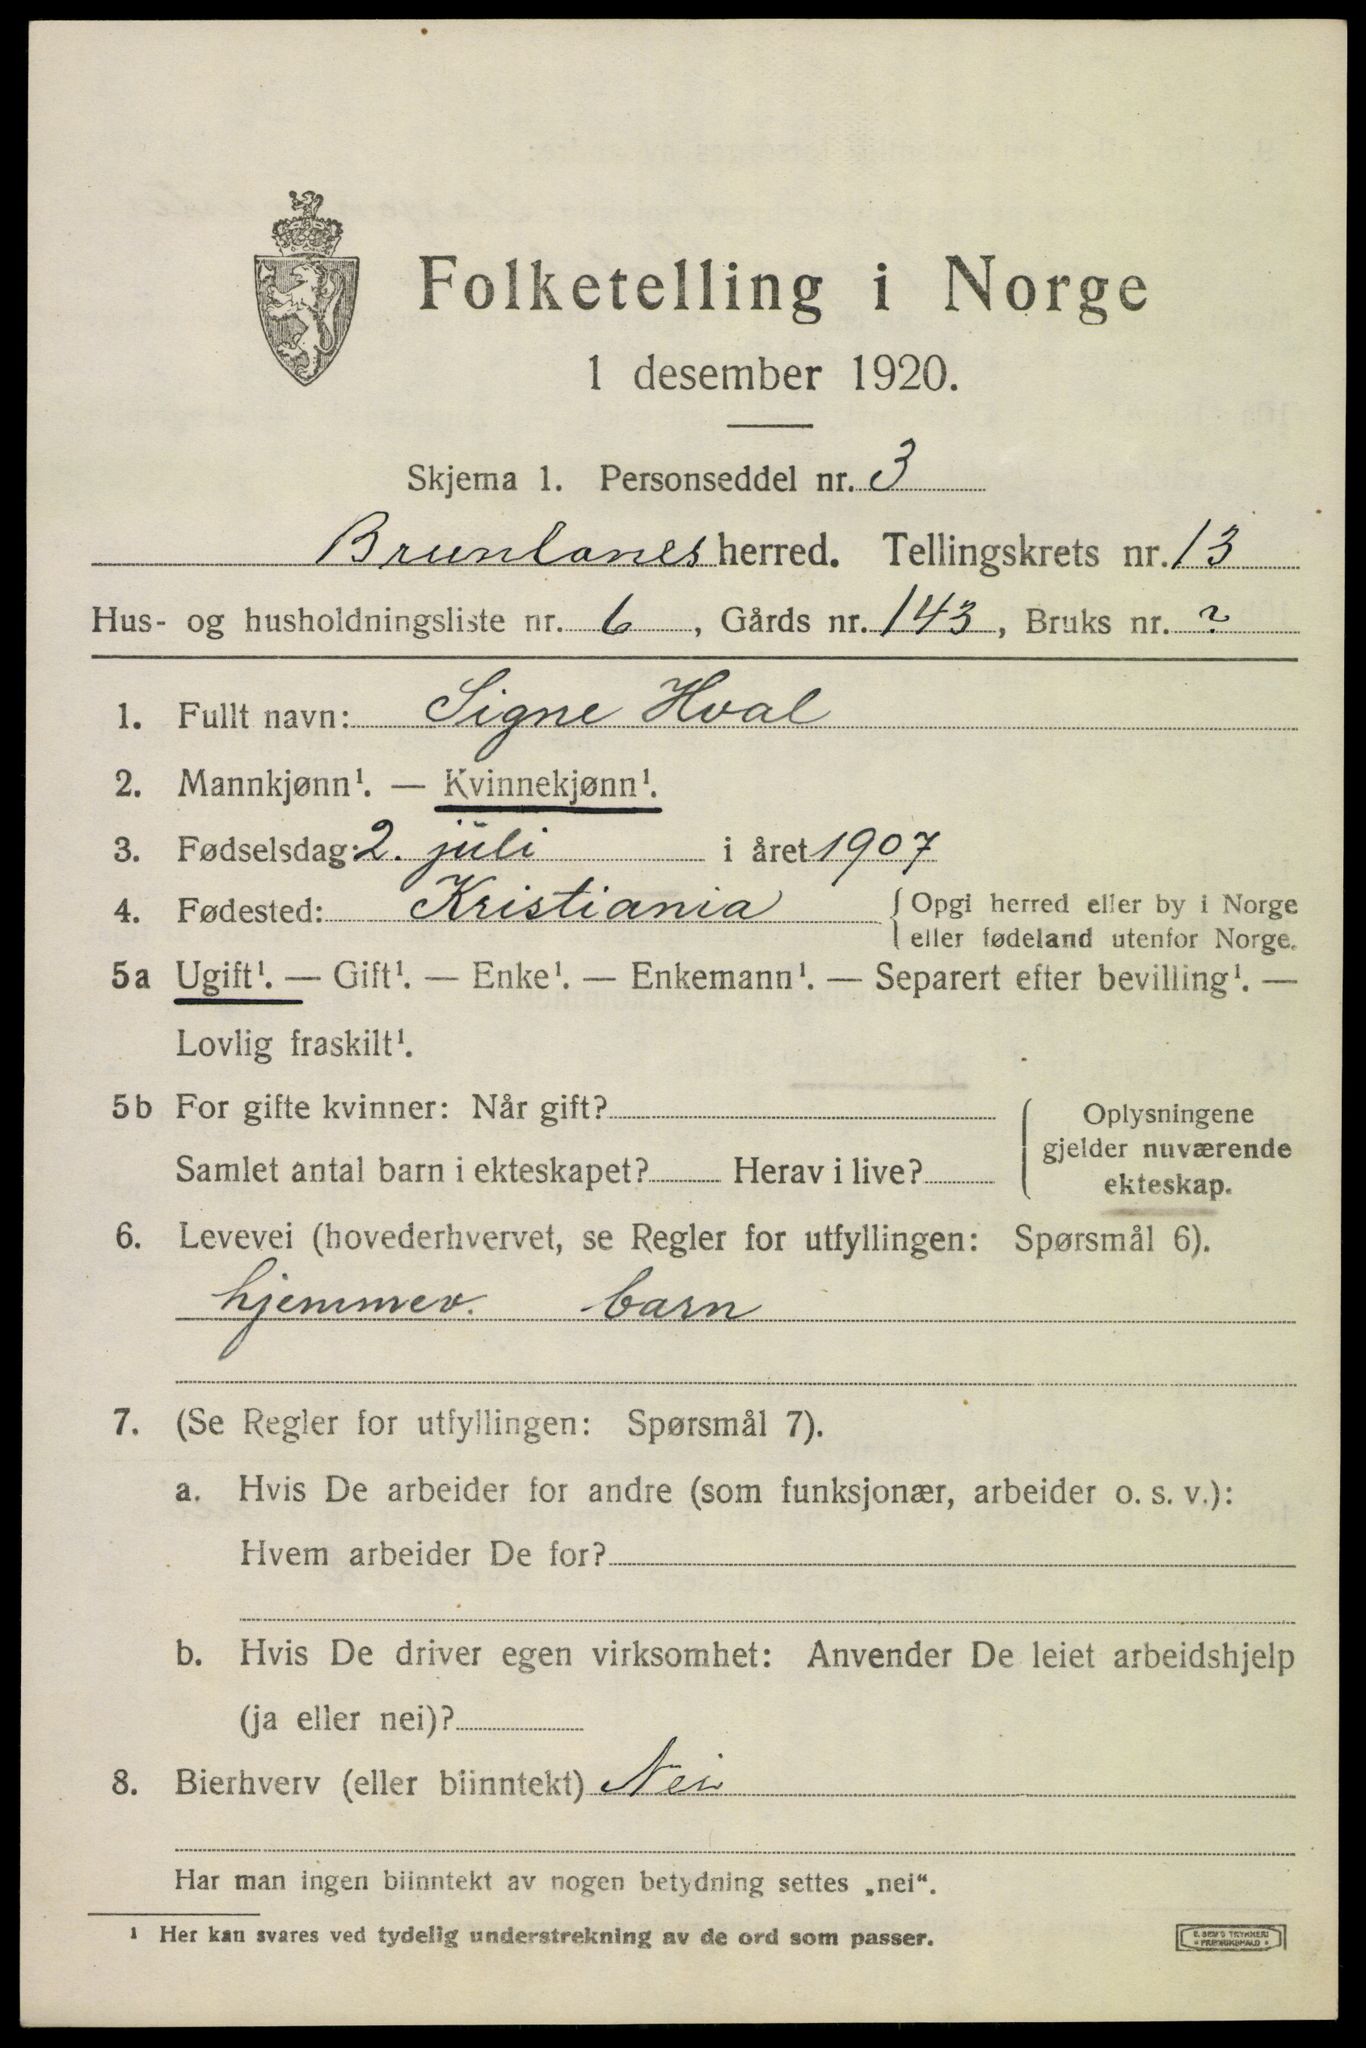 Folketelling i Norge
1 desember 1920.
Skjema 1. Personseddel nr. 3
Brunlanes herred. Tellingskrets nr. 13
Hus- og husholdningsliste nr. 6, Gårds nr. 143, Bruks nr. ?
1. Fullt navn: Signe Hval
2. Mannkjønn¹. — Kvinnekjønn¹.
3. Fødselsdag: 2. juli i året 1907
4. Fødested: Kristiania { Opgi herred eller by i Norge
eller fødeland utenfor Norge.
5a Ugift¹. — Gift¹. — Enke¹. — Enkemann¹. — Separert efter bevilling¹. —
Lovlig fraskilt¹.
5b For gifte kvinner: Når gift?
Samlet antal barn i ekteskapet? Herav i live?
Oplysningene
gjelder nuværende
ekteskap.
6. Levevei (hovederhvervet, se Regler for utfyllingen: Spørsmål 6).
hjemmev. barn
7. (Se Regler for utfyllingen: Spørsmål 7).
a. Hvis De arbeider for andre (som funksjonær, arbeider o. s. v.):
Hvem arbeider De for?
b. Hvis De driver egen virksomhet: Anvender De leiet arbeidshjelp
(ja eller nei)?
8. Bierhverv (eller biinntekt) Nei
Har man ingen biinntekt av nogen betydning settes „nei“.
¹ Her kan svares ved tydelig understrekning av de ord som passer.